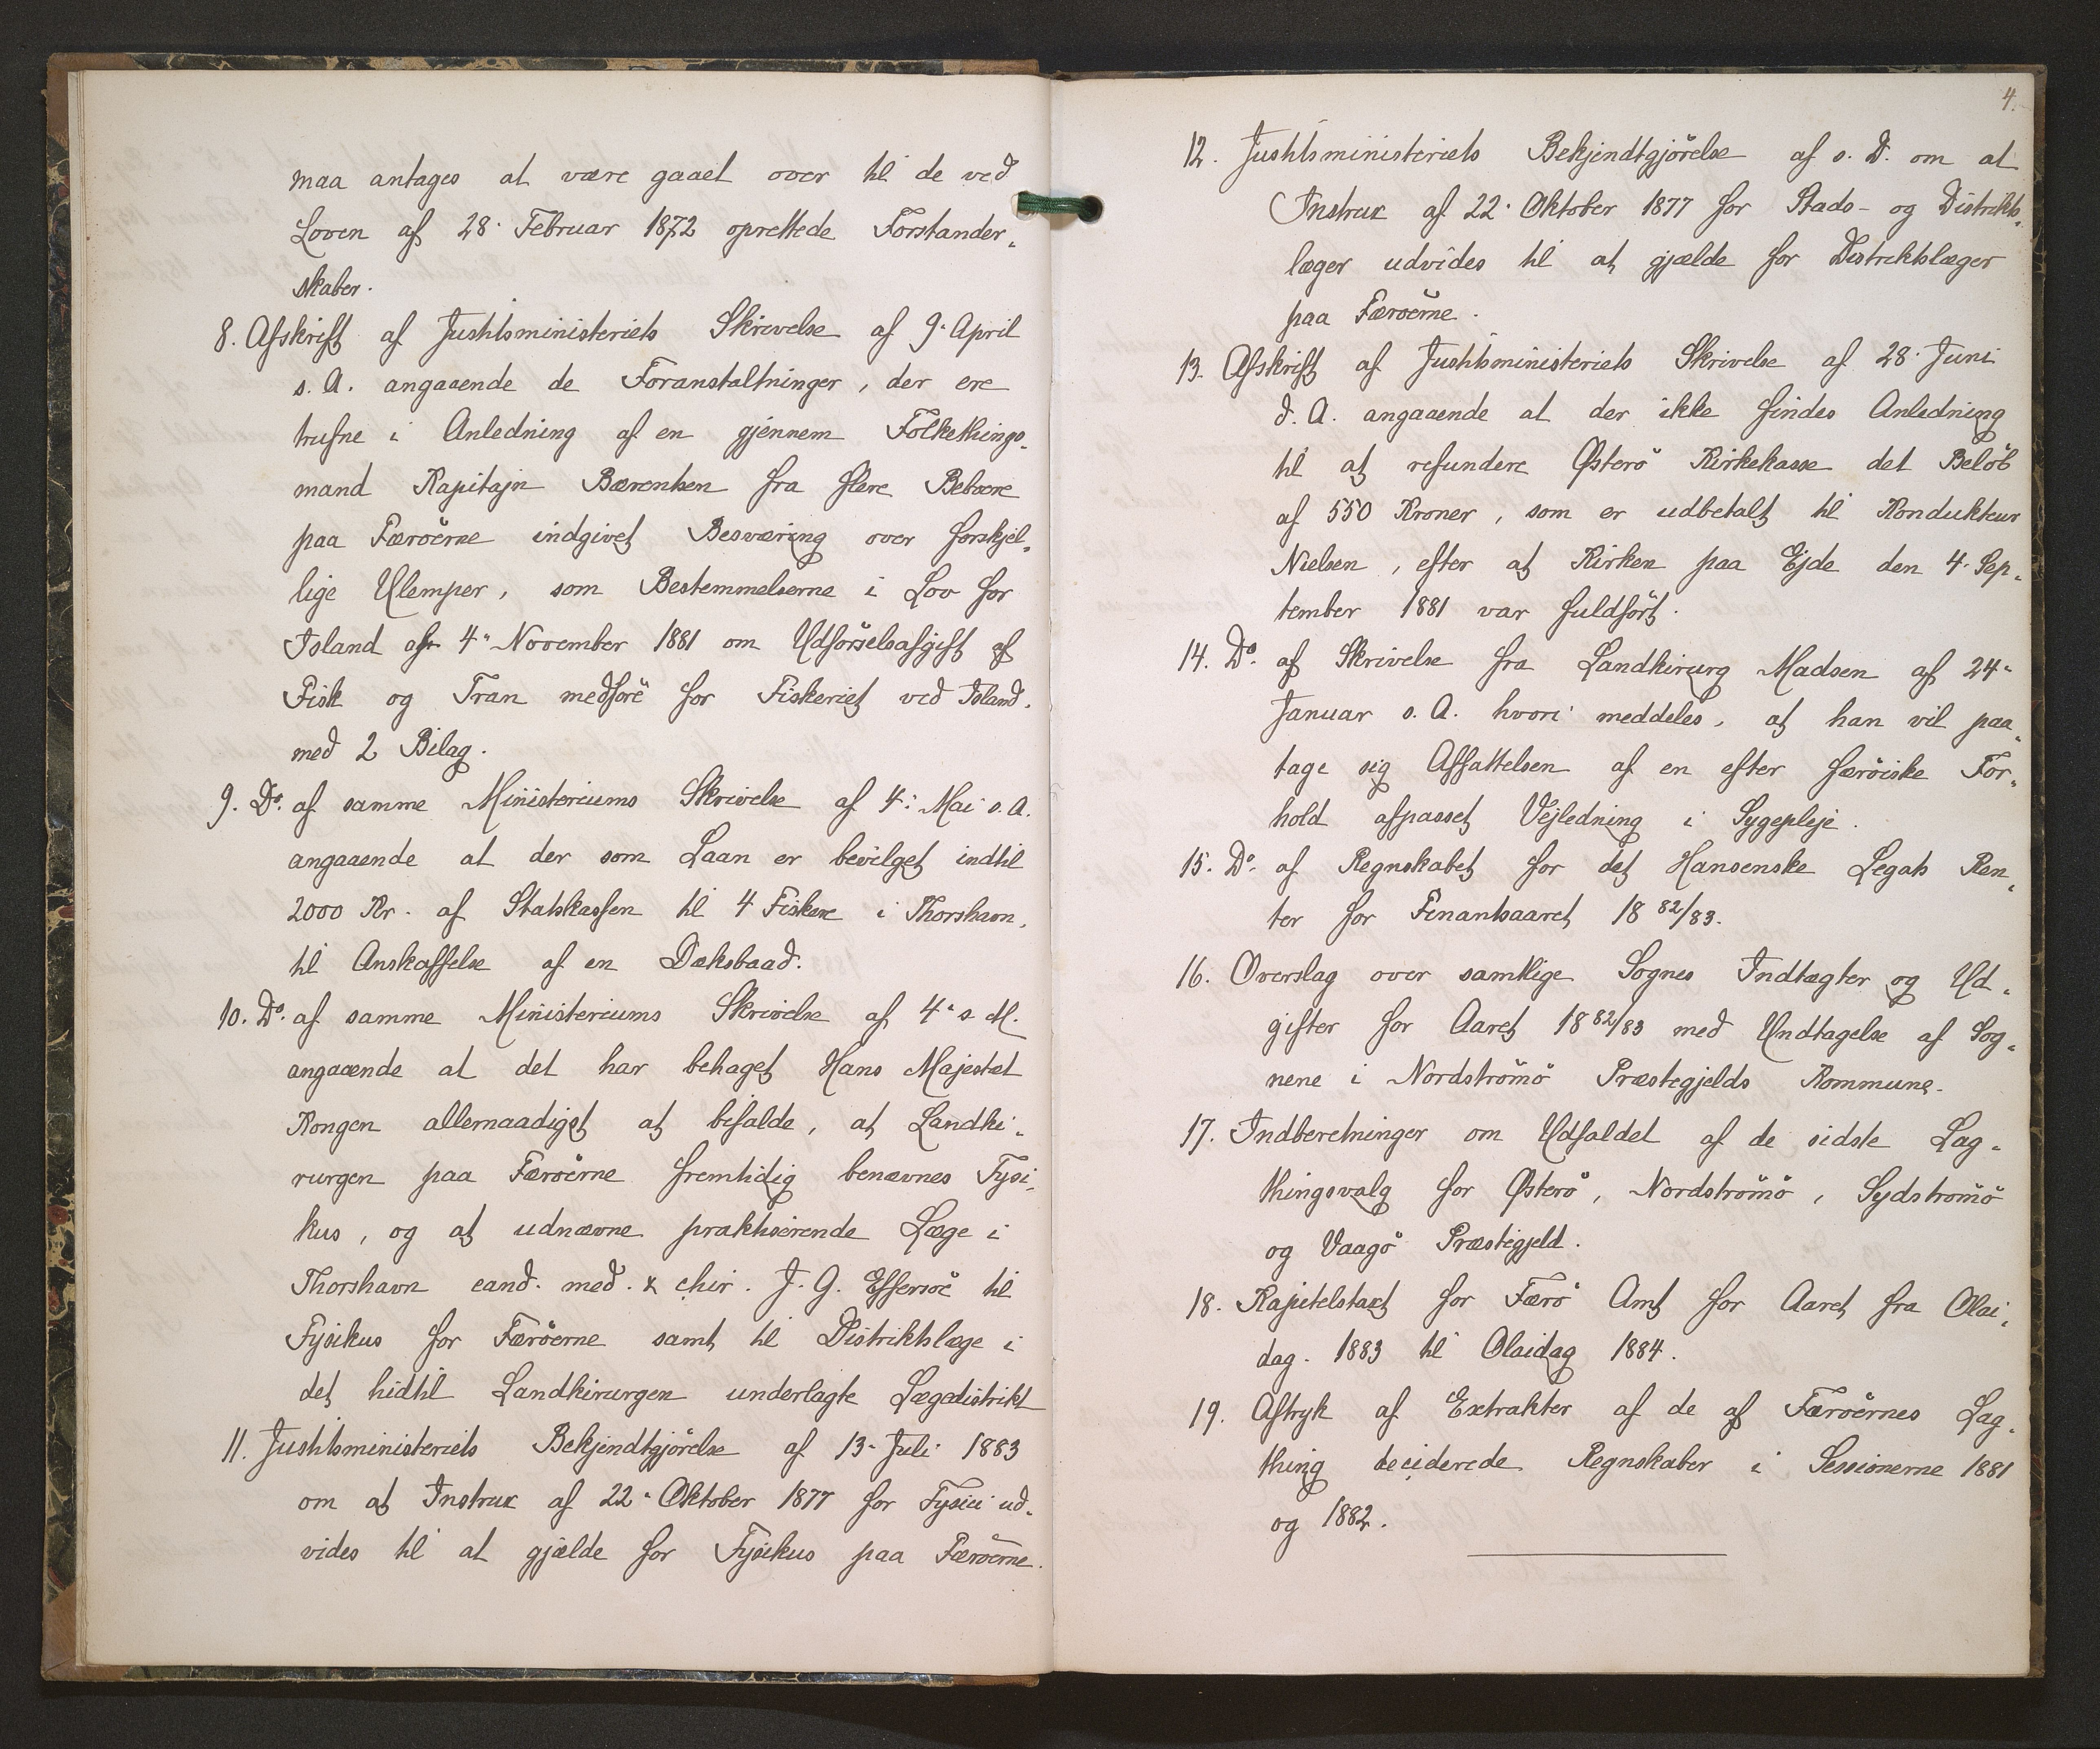 maa antages at være gaaet over til de ved
Loven af 28. Februar 1872 oprettede Forstander-
skaber.
8. Afskrift af Justitsministeriets Skrivelse af 9. April
s. A. angaaende de Foranstaltninger, der ere
trufne i Anledning af en gjennem Folkethings-
mand Kapitajn Bærentsen fra flere Beboere
paa Færöerne indgivet Besværing over forskjel-
lige Ulemper, som Bestemmelserne i Lov for
Island af 4. November 1881 om Udförselsafgift af
Fisk og Tran medföre for Fiskeriet ved Island.
med 2 Bilag.
9. Do. af samme Ministeriums Skrivelse af 4. Mai s. A.
angaaende at der som Laan er bevilget indtil
2000 Kr. af Statskassen til 4 Fiskere i Thorshavn,
til Anskaffelse af en Dæksbaad.
10. Do. af samme Ministeriums Skrivelse af 4. s. M.
angaaende at det har behaget Hans Majestæt
Kongen allernaadigst at bifalde, at Landki-
rurgen paa Færöerne fremtidig benævnes Fysi-
kus, og at udnævne praktiserende Læge i
Thorshavn cand. med. & chir. J. G. Effersöe til
Fysikus for Færöerne samt til Distriktslæge i
det hidtil Landkirurgen underlagte Lægedistrikt
11. Justitsministeriets Bekjendtgjörelse af 13. Juli 1883
om at Instrux af 22. Oktober 1877 for Fysici ud-
vides til at gjælde for Fysikus paa Færöerne.
4.
12. Justitsministeriets Bekjendtgjörelse af s. D. om at
Instrux af 22. Oktober 1877 for Stads- og Distrikts-
læger udvides til at gjælde for Distriktslæger
paa Færöerne.
13. Afskrift af Justitsministeriets Skrivelse af 28. Juni
d. A. angaaende at der ikke findes Anledning
til at refundere Østerö Kirkekasse det Belöb
af 550 Kroner, som er udbetalt til Kondukteur
Nielsen, efter at Kirken paa Ejde den 4. Sep-
tember 1881 var fuldfört.
14. Do. af Skrivelse fra Landkirurg Madsen af 24.
Januar s. A. hvori meddeles, at han vil paa-
tage sig Affattelsen af en efter færöiske For-
hold afpasset Vejledning i Sygepleje.
15. Do. af Regnskabet for det Hansenske Legats Ren-
ter for Finantsaaret 18 82/83.
16. Overslag over samtlige Sognes Indtægter og Ud-
gifter for Aaret 18 82/83 med Undtagelse af Sog-
nene i Nordströmö Præstegjelds Kommune.
17. Indberetninger om Udfaldet af de sidste Lag-
thingsvalg for Østerö, Nordströmö, Sydströmö
og Vaagö Præstegjeld.
18. Kapitelstaxt for Færö Amt for Aaret fra Olai-
dag. 1883 til Olaidag 1884.
19. Aftryk af Extrakter af de af Færöernes Lag-
thing deciderede Regnskaber i Sessionerne 1881
og 1882.